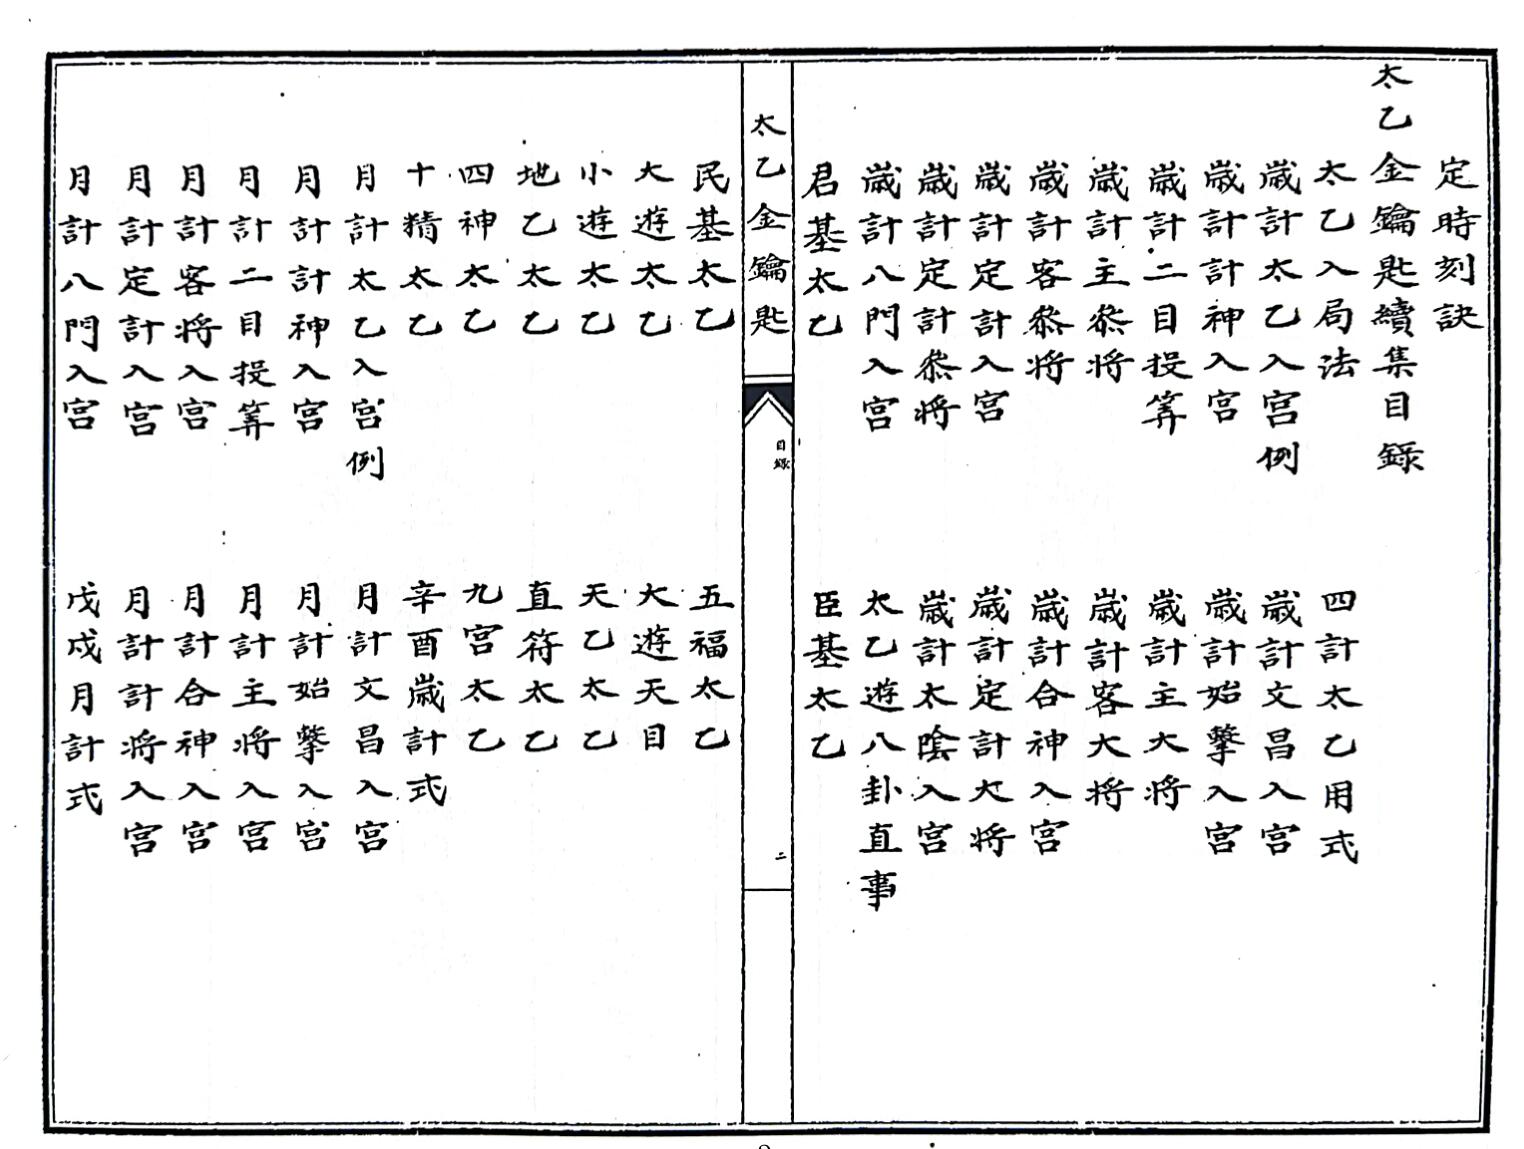 定時刻訣
太乙金鑰匙續集目錄
太乙入局法　四計太乙用式
歲計太乙入宮例　歲計文昌入宮
歲計計神入宮　歲計始擊入宮
歲計二目投筭　歲計主大將
歲計主叅將　歲計客大將
歲計客叅將　歲計合神入宮
歲計定計入宮　歲計定計大將
歲計定計叅將　歲計太陰入宮
歲計八門入宮　太乙遊八卦直事
君基太乙　臣基太乙
太乙金鑰匙
目錄
二
民基太乙　五福太乙
大遊太乙　大遊天目
小遊太乙　天乙太乙
地乙太乙　直符太乙
四神太乙　九宮太乙
十精太乙　辛酉歲計式
月計太乙入宮例　月計文昌入宮
月計計神入宮　月計始擊入宮
月計二目投筭　月計主將入宮
月計客將入宮　月計合神入宮
月計定計入宮　月計計將入宮
月計八門入宮　戊戌月計式